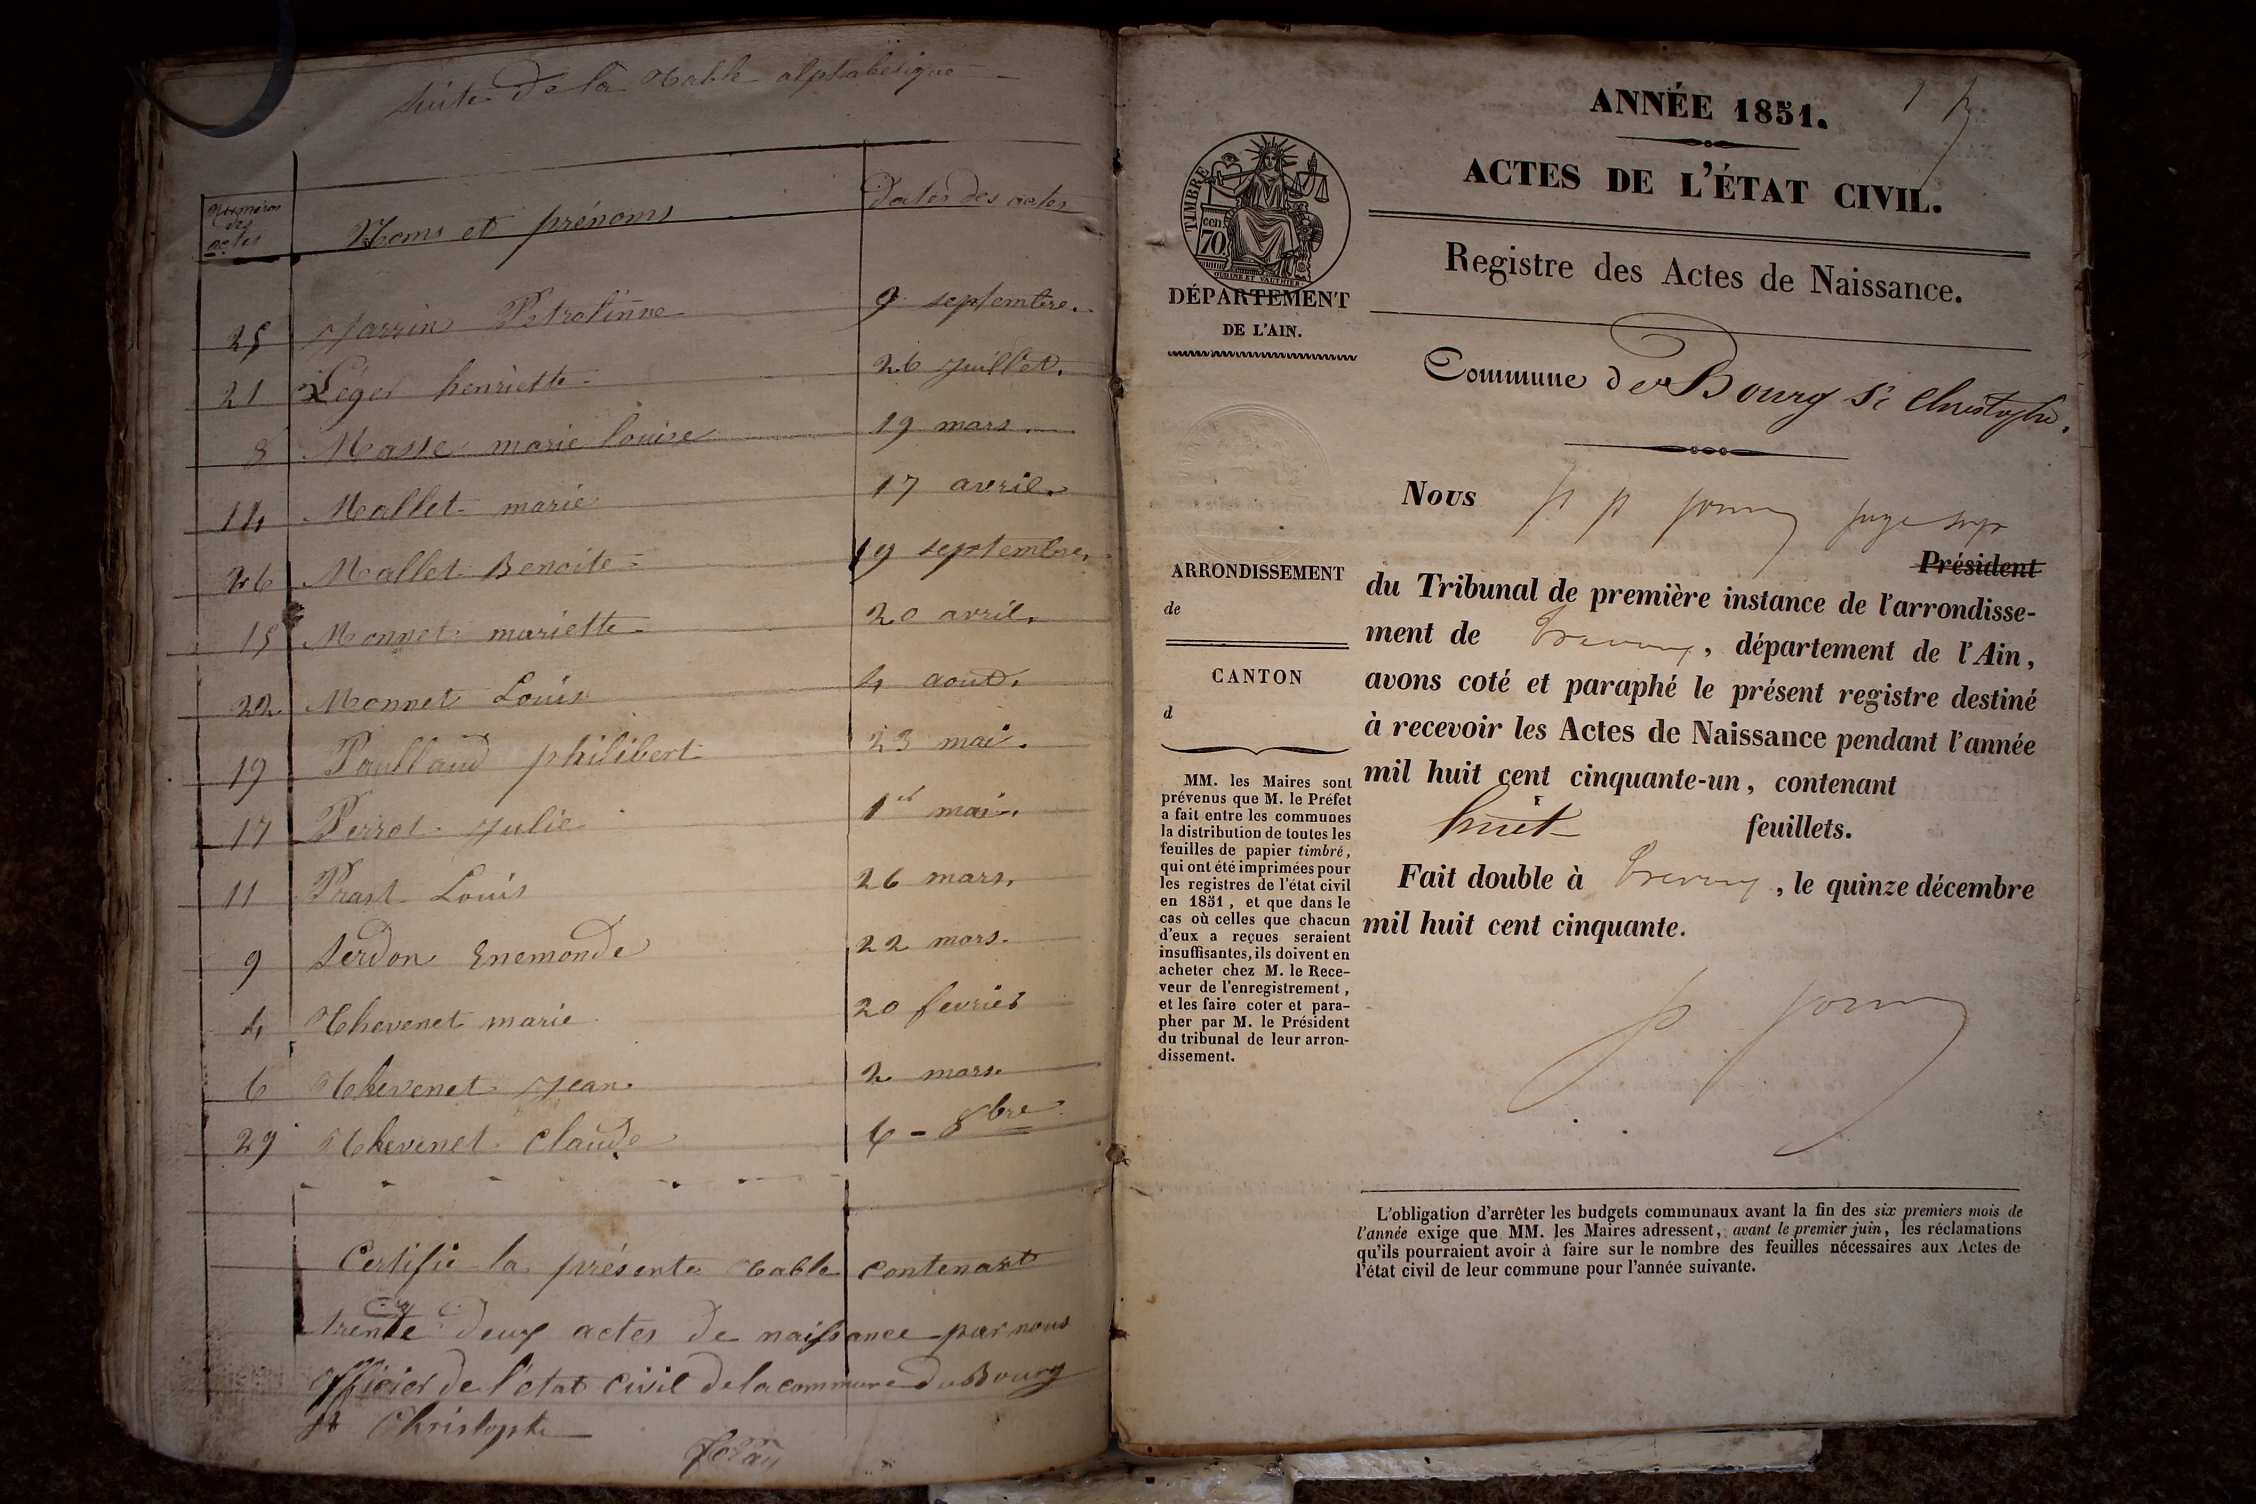 suite de la table alphabétique
Numéros des actes
Noms et prénoms
Dates des actes
25 Jarrin Petroline 9 septembre.
21 Léger henriette 26 juillet.
8 Masse marie louise 19 mars.
14 Mallet marie 17 avril.
26 Mallet Benoite 19 septembre.
15 Monnet mariette 20 avril.
22 Monnet Louis 4 aout.
19 Paulland philibert 23 mai.
17 Perrot Julie 1er mai.
11 Prast Louis 26 mars.
9 Serdon Enemonde 22 mars.
4 Thevenet marie 20 fevrier
6 Thevenet Jean 2 mars.
29 Thevenet Claude 6 - 8bre
Certifié la présente table contenant
trente deux actes de naissance par nous
officier de l'état civil de la commune du Bourg
St Christophe
ANNÉE 1851.
ACTES DE L'ÉTAT CIVIL.
TIMBRE
cen. 70
OUDINE ET VAUTHIER
Registre des Actes de Naissance.
DÉPARTEMENT
DE L'AIN.
Commune de Bourg St Christophe.
Nous
Président
ARRONDISSEMENT
de
CANTON
d
du Tribunal de première instance de l'arrondisse-
ment de Trevoux, département de l'Ain,
avons coté et paraphé le présent registre destiné
à recevoir les Actes de Naissance pendant l'année
mil huit cent cinquante-un, contenant
huit feuillets.
Fait double à Trevoux, le quinze décembre
mil huit cent cinquante.
MM. les Maires sont
prévenus que M. le Préfet
a fait entre les communes
la distribution de toutes les
feuilles de papier timbré,
qui ont été imprimées pour
les registres de l'état civil
en 1851, et que dans le
cas où celles que chacun
d'eux a reçues seraient
insuffisantes, ils doivent en
acheter chez M. le Rece-
veur de l'enregistrement,
et les faire coter et para-
pher par M. le Président
du tribunal de leur arron-
dissement.
L'obligation d'arrêter les budgets communaux avant la fin des six premiers mois de
l'année exige que MM. les Maires adressent, avant le premier juin, les réclamations
qu'ils pourraient avoir à faire sur le nombre des feuilles nécessaires aux Actes de
l'état civil de leur commune pour l'année suivante.